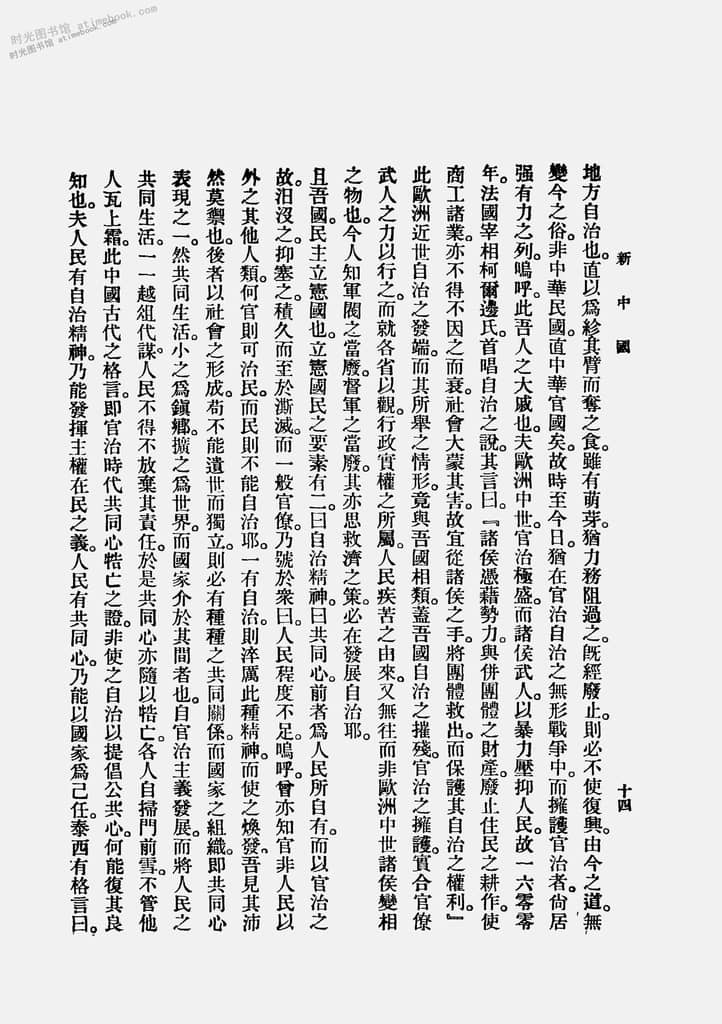 时光图书馆 atimebook.com
时光图书馆 atimebook.com
新中國
十四
地方自治也。直以爲紾其臂而奪之食。雖有萌芽。猶力務阻遏之。旣經廢止。則必不使復興。由今之道。無
變今之俗。非中華民國。直中華官國矣。故時至今日。猶在官治自治之無形戰爭中。而擁護官治者。尙居
强有力之列。嗚呼。此吾人之大戚也。夫歐洲中世。官治極盛。而諸侯武人。以暴力壓抑人民。故一六零零
年。法國宰相柯爾邊氏。首唱自治之說。其言曰。『諸侯憑藉勢力。與併團體之財產。廢止住民之耕作。使
商工諸業。亦不得不因之而衰。社會大蒙其害。故宜從諸侯之手。將團體救出。而保護其自治之權利。』
此歐洲近世自治之發端。而其所舉之情形。竟與吾國相類。蓋吾國自治之摧殘。官治之擁護。實合官僚
武人之力以行之。而就各省以觀。行政實權之所屬。人民疾苦之由來。又無往而非歐洲中世諸侯變相
之物也。今人知軍閥之當廢。督軍之當廢。其亦思救濟之策。必在發展自治耶。
且吾國。民主立憲國也。立憲國民之要素有二。曰自治精神。曰共同心。前者爲人民所自有。而以官治之
故。汨沒之。抑塞之。積久而至於澌滅。而一般官僚。乃號於衆曰。人民程度不足。嗚呼。曾亦知官非人民以
外之其他人類。何官則可治民。而民則不能自治耶。一有自治。則淬厲此種精神。而使之煥發。吾見其沛
然莫禦也。後者以社會之形成。苟不能遺世而獨立。則必有種種之共同關係。而國家之組織。卽共同心
表現之一。然共同生活。小之爲鎭鄉。擴之爲世界。而國家介於其間者也。自官治主義發展。而將人民之
共同生活。一一越俎代謀。人民不得不放棄其責任。於是共同心亦隨以牿亡。各人自掃門前雪。不管他
人瓦上霜。此中國古代之格言。卽官治時代共同心牿亡之證。非使之自治以提倡公共心。何能復其良
知也。夫人民有自治精神。乃能發揮主權在民之義。人民有共同心。乃能以國家爲己任。泰西有格言曰。